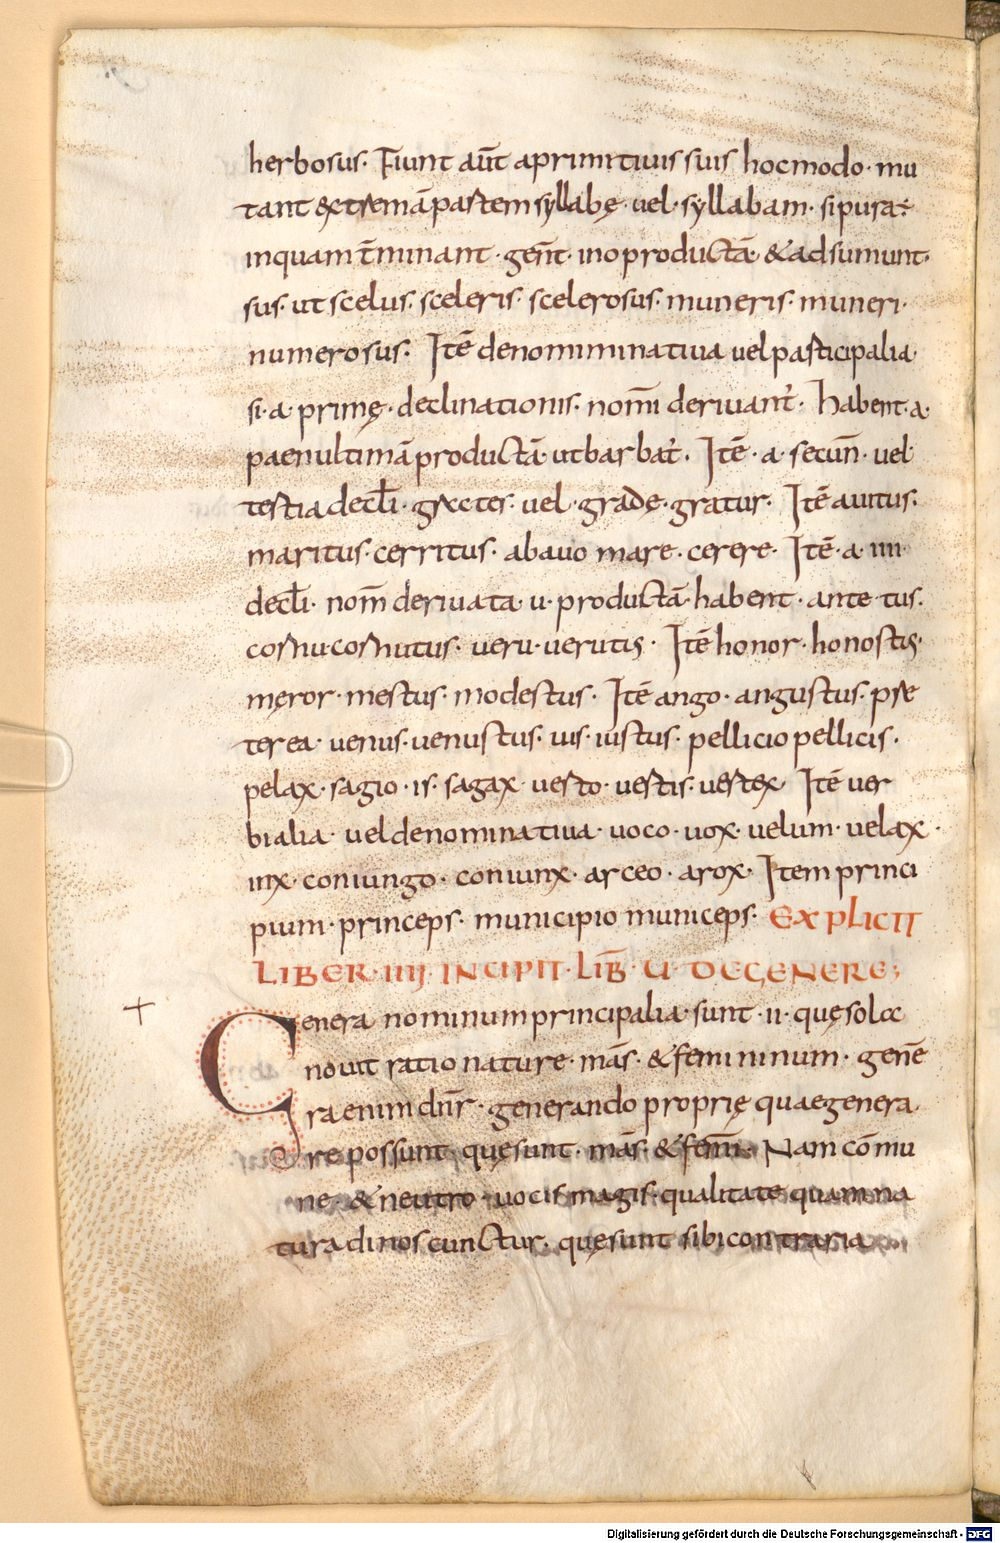 herbosus· Fiunt aut̄ aprimitiuis suis hocmodo· mu
tant &ctremā partem syllabę· uel· syllabam· si pura·
inquam t̄minant· gen̄t· ino productā· & adsumunt·
sus· ut scelus· sceleris· scelerosus· muneris· muneri·
numerosus· Itē denominminatiua uel participalia·
si· a· primę· declinationis· nom̄i deriuant᷑· habent· a·
paenultimā productā· ut barbat᷑· Itē· a· secun̄· uel
tertia decl̄i· gręctes· uel· gradę· gratur· Itē auitus·
maritus· cerritus· abauo mare· cerere· Itē· a· iiii·
decl̄i· nom̄ deriuata· u· productā· habent· ante tus·
cornu· cornutus· ueru· uerutis· Itē honor· honostis·
męror· mestus· modestus· Itē ango· angustus· pre
terea· uenus· uenustus· ius· iustus· pellicio pellicis·
pelax· sagio· is· sagax· uerto· uertis· uertex Itē uer
bialia· uel denominatiua· uoco· uox· uelum· uelax·
iux· coniungo· coniunx· arceo· arox· Item princi
pium· princeps· municipio municeps· EXPLICIT
LIBER· IIII· INCIPIT· LIB̄· U DEGENERE;
Genera nominum principalia· sunt· ii· quę sola
nouit ratio nature· mās· & femininum· genē
ra enim dn̄r· generando proprię quae genera
re possunt· quę sunt· mās· & fem̄i· Nam cōmu
ne· & neutro· uocis magis· qualitate quam na
tura dinoscunctur· quę sunt sibi contraria
Digitalisierung gefördert durch die Deutsche Forschungsgemeinschaft - DFG